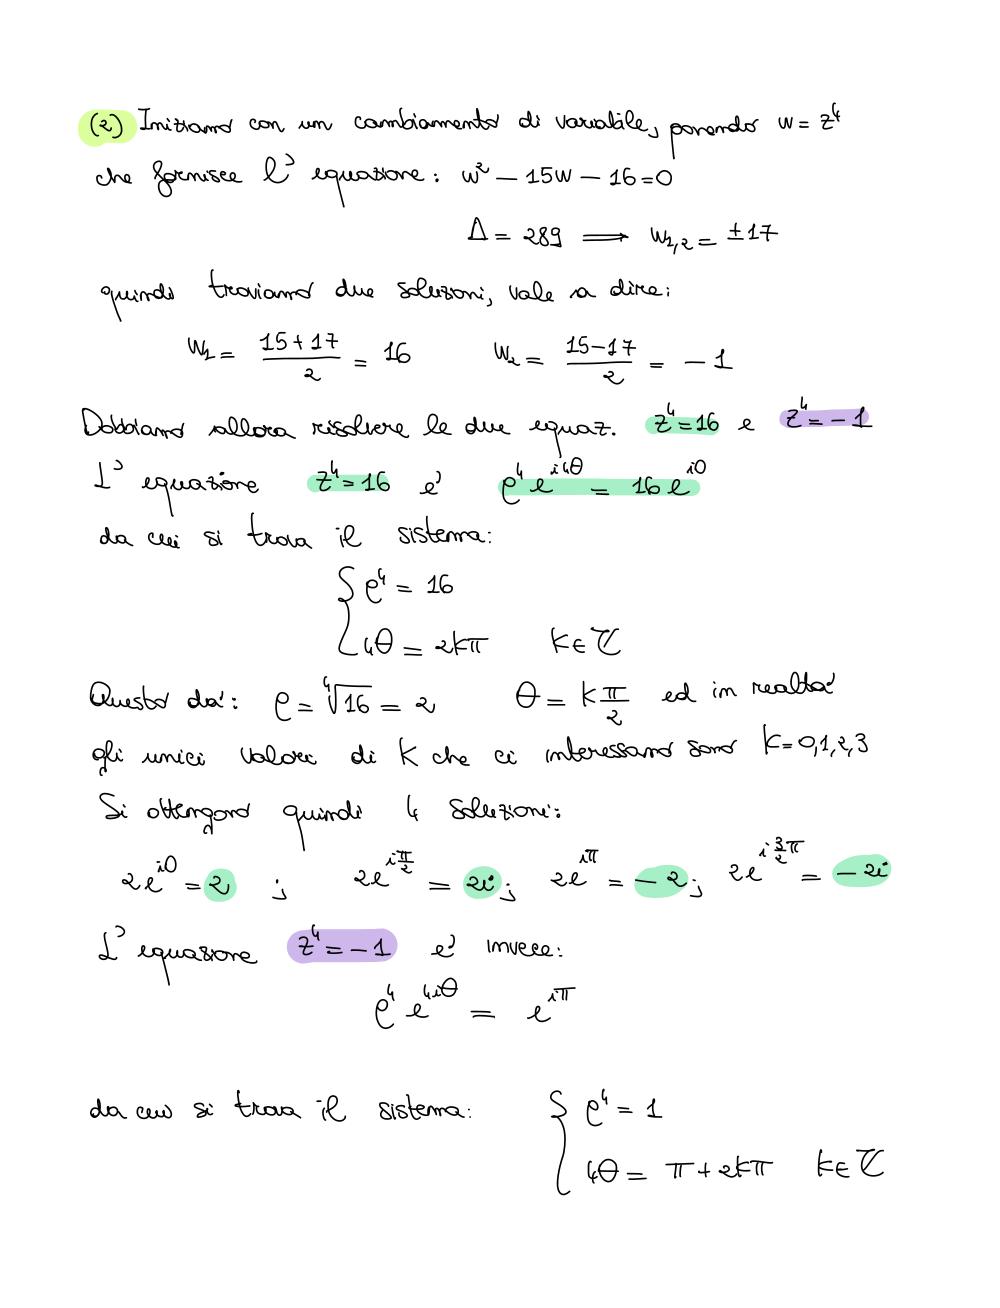 (2) Iniziamo con un cambiamento di variabile, ponendo w = z⁴
che fornisce l' equazione: w² – 15w – 16 = 0
Δ = 289 ⟹ w₁,₂ = ±17
quindi troviamo due soluzioni, vale a dire:
w₁ = (15+17)/2 = 16 w₂ = (15–17)/2 = – 1
Dobbiamo allora risolvere le due equaz. z⁴ = 16 e z⁴ = – 1
L' equazione z⁴ = 16 e' ρ⁴ e^{i4θ} = 16 e^{i0}
da cui si trova il sistema:
{ ρ⁴ = 16
4θ = 2kπ k ∈ ℤ
Questo da': ρ = ⁴√16 = 2 θ = k π/2 ed in realta'
gli unici valori di k che ci interessano sono k = 0,1,2,3
Si ottengono quindi 4 soluzioni:
2e^{i0} = 2 ; 2e^{iπ/2} = 2i ; 2e^{iπ} = – 2 ; 2e^{i3/2π} = – 2i
L' equazione z⁴ = – 1 e' invece:
ρ⁴ e^{4iθ} = e^{iπ}
da cui si trova il sistema: { ρ⁴ = 1
4θ = π + 2kπ k ∈ ℤ